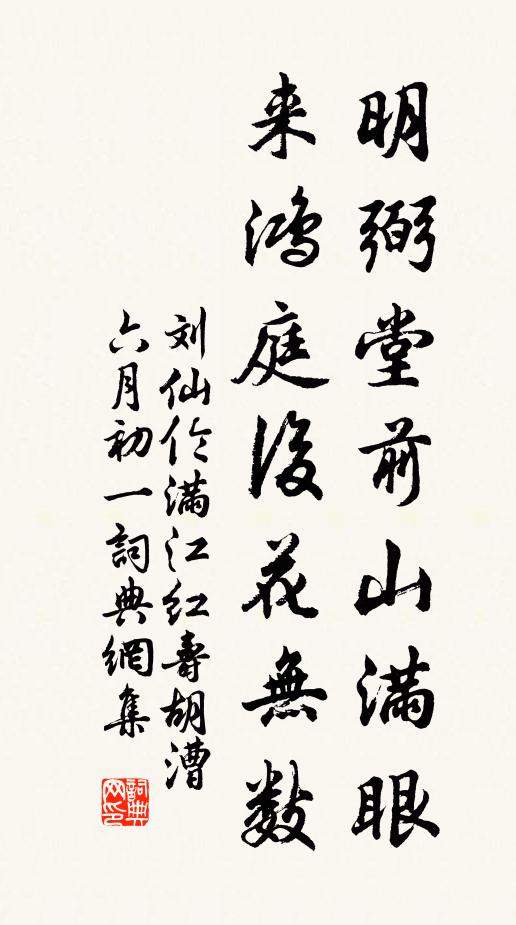 明弼堂前山满眼
来鸿庭後花無数
刘仙伦满江红寿胡漕
六月初一詞典網集
詞典
网印